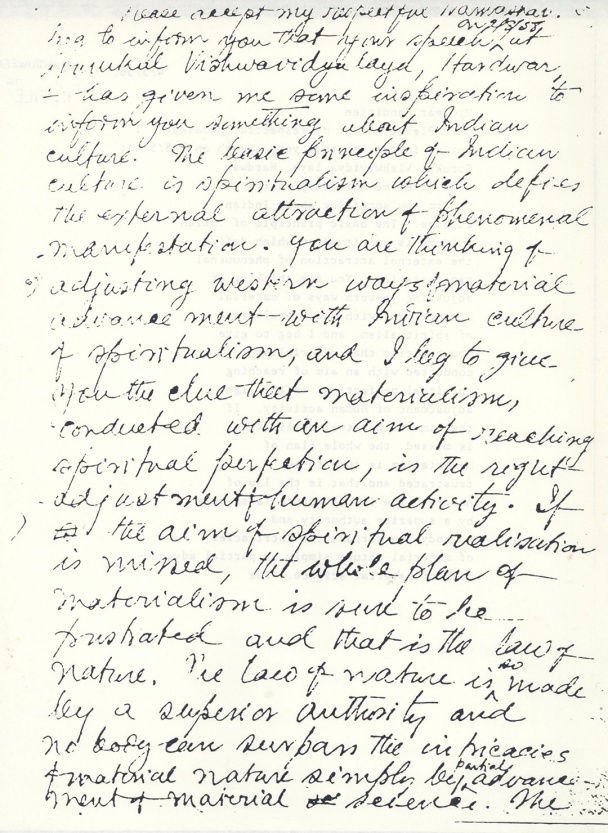 Please accept my respectful Namaskar.
beg to inform you that your speech on 2/3/55, at
Gurukul Vishwavidyalaya, Hardwar,
has given me some inspiration to
inform you something about Indian
culture. The basic principle of Indian
culture is spiritualism which defies
the external attraction of phenomenal
manifestation. You are thinking of
adjusting western ways of material
advancement with Indian culture
of spiritualism, and I beg to give
you the clue that materialism,
conducted with an aim of reaching
spiritual perfection, is the right
adjustment of human activity. If
the aim of spiritual realisation
is missed, the whole plan of
materialism is sure to be
frustrated and that is the law of
nature. The law of nature is so made
by a superior authority and
no body can surpass the intricacies
of material nature simply by partial advance-
ment of material science. The